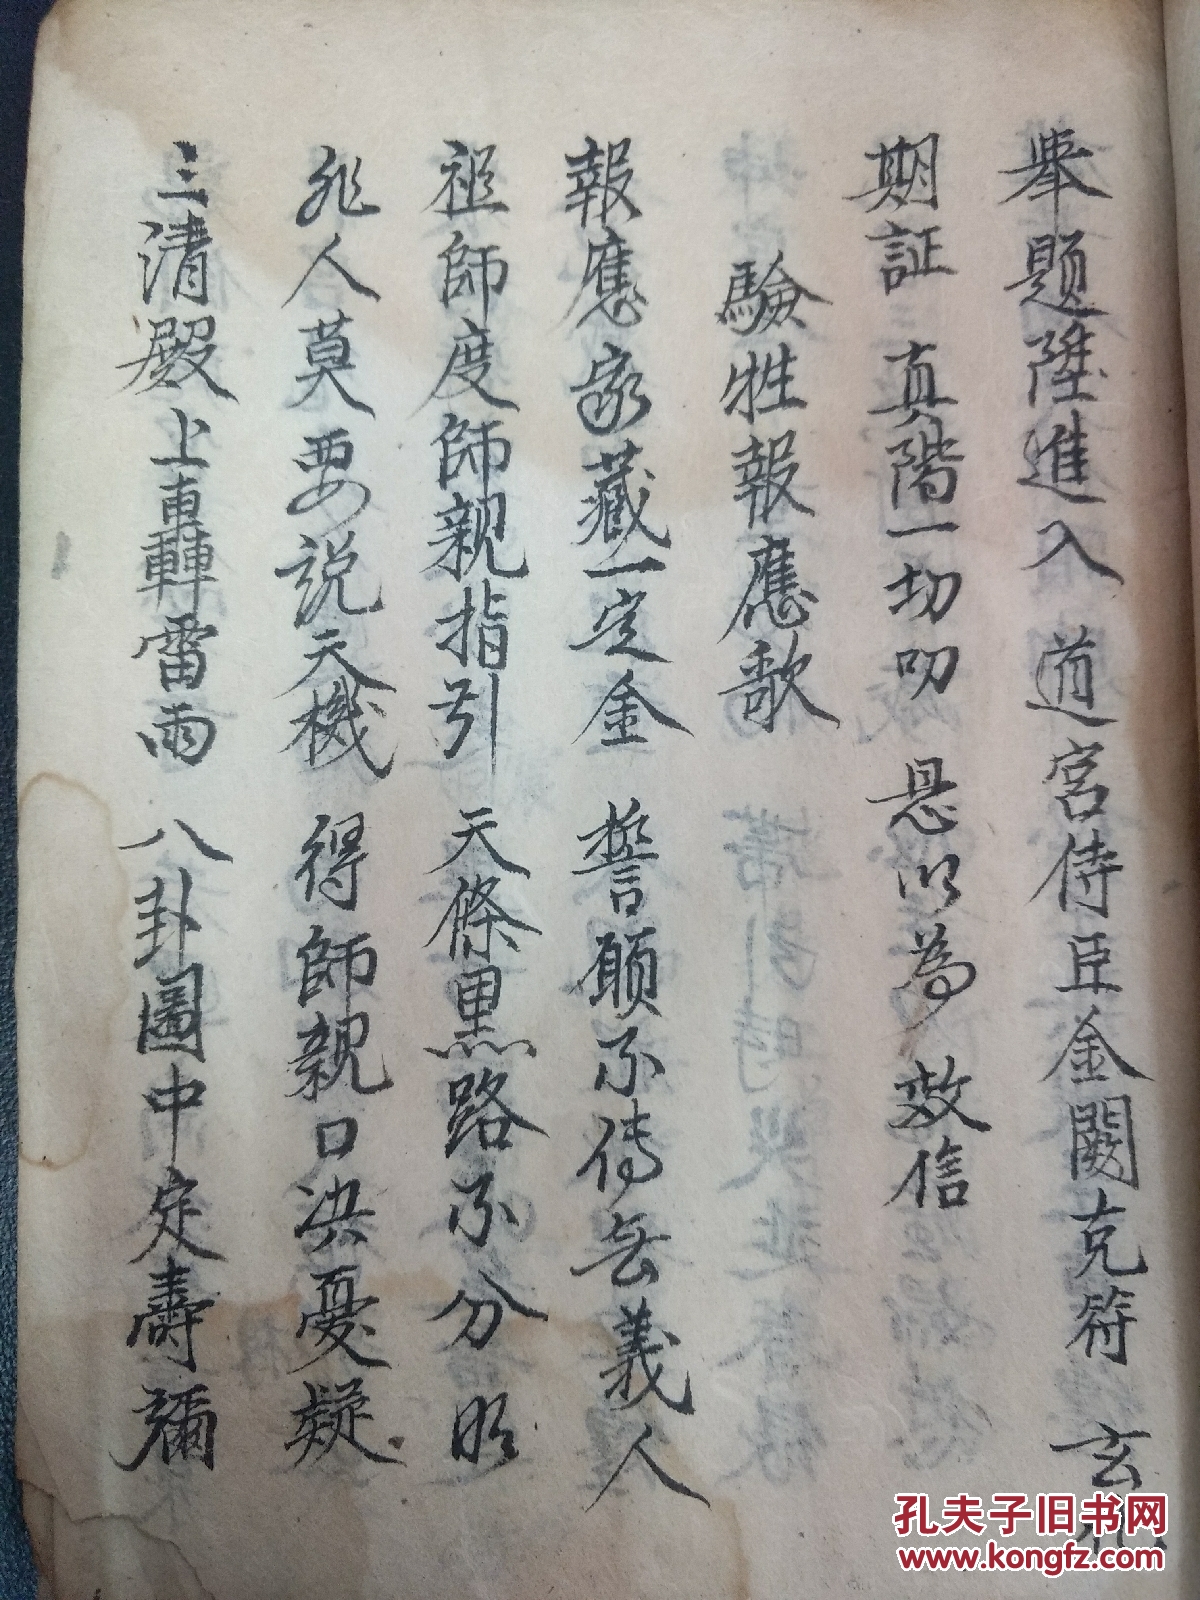 舉題陞進入 道宮侍臣金闕克符 玄
期証 真階一切叨 恩以為 效信
驗牲報應歌
報應家藏一定金 誓願不傳無義人
祖師度師親指引 天條黑路不分明
非人莫要說天機 得師親口決憂疑
三清殿上轟轉雷雨 八卦圖中定壽彌
孔夫子旧书网
www.kongfz.com